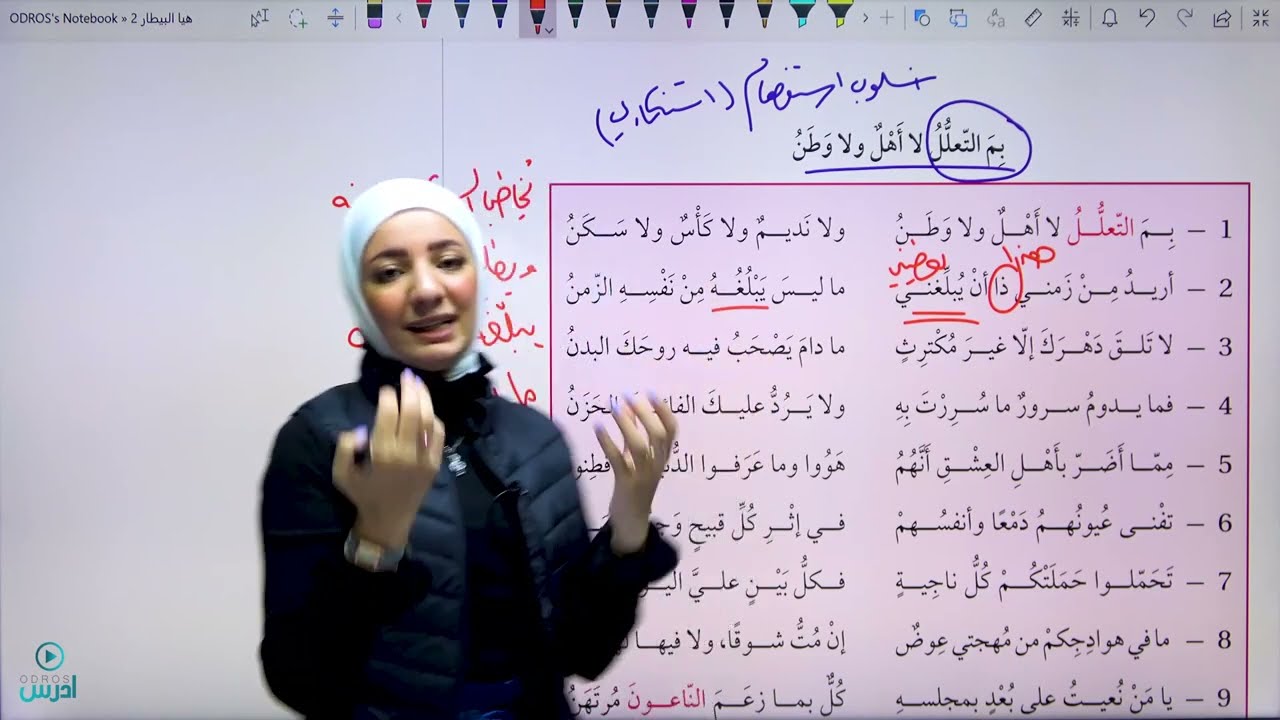 ODROS's Notebook » 2 هيا البيطار
أسلوب استفهام (استنكاري)
بِمَ التّعلُّلُ لا أَهْلٌ ولا وَطَنُ
1 – بِـمَ التّعلُّـلُ لا أَهْـلٌ ولا وَطَـنُ ولا نَديـمٌ ولا كَـأْسٌ ولا سَـكَنُ
2 – أريـدُ مِـنْ زَمنـي ذا أنْ يُبلِّغنـي ما ليـسَ يَبْلُغُـهُ مِنْ نَفْسِـهِ الزّمنُ
3 – لا تَلـقَ دَهْـرَكَ إلّا غيـرَ مُكْترِثٍ ما دامَ يَصْحَبُ فيـه روحَكَ البدنُ
4 – فما يـدومُ سـرورٌ ما سُـرِرْتَ بِهِ ولا يَـرُدُّ عليـكَ الحَزَنُ
5 – مِمّـا أضَـرّ بأَهْـلِ العِشْـقِ أَنَّهُمُ هَوُوا وما عَرَفـوا
6 – تفْنـى عُيونُهـمُ دَمْعًـا وأنفسُـهمْ فـي إثْـرِ كُلِّ قبيحٍ
7 – تَحَمّلـوا حَمَلَتْكُـمْ كُلُّ ناجيـةٍ فـكلُّ بَيْـنٍ علـيَّ
8 – ما في هوادِجِكمْ من مُهجتي عِوضٌ إنْ مُتُّ شـوقًا، ولا فيهـا
9 – يا مَنْ نُعيتُ على بُعْدٍ بمجلسـهِ كُلٌّ بمـا زعَـمَ النّاعـونَ مُرتَهَنُ
ODROS
ادرس